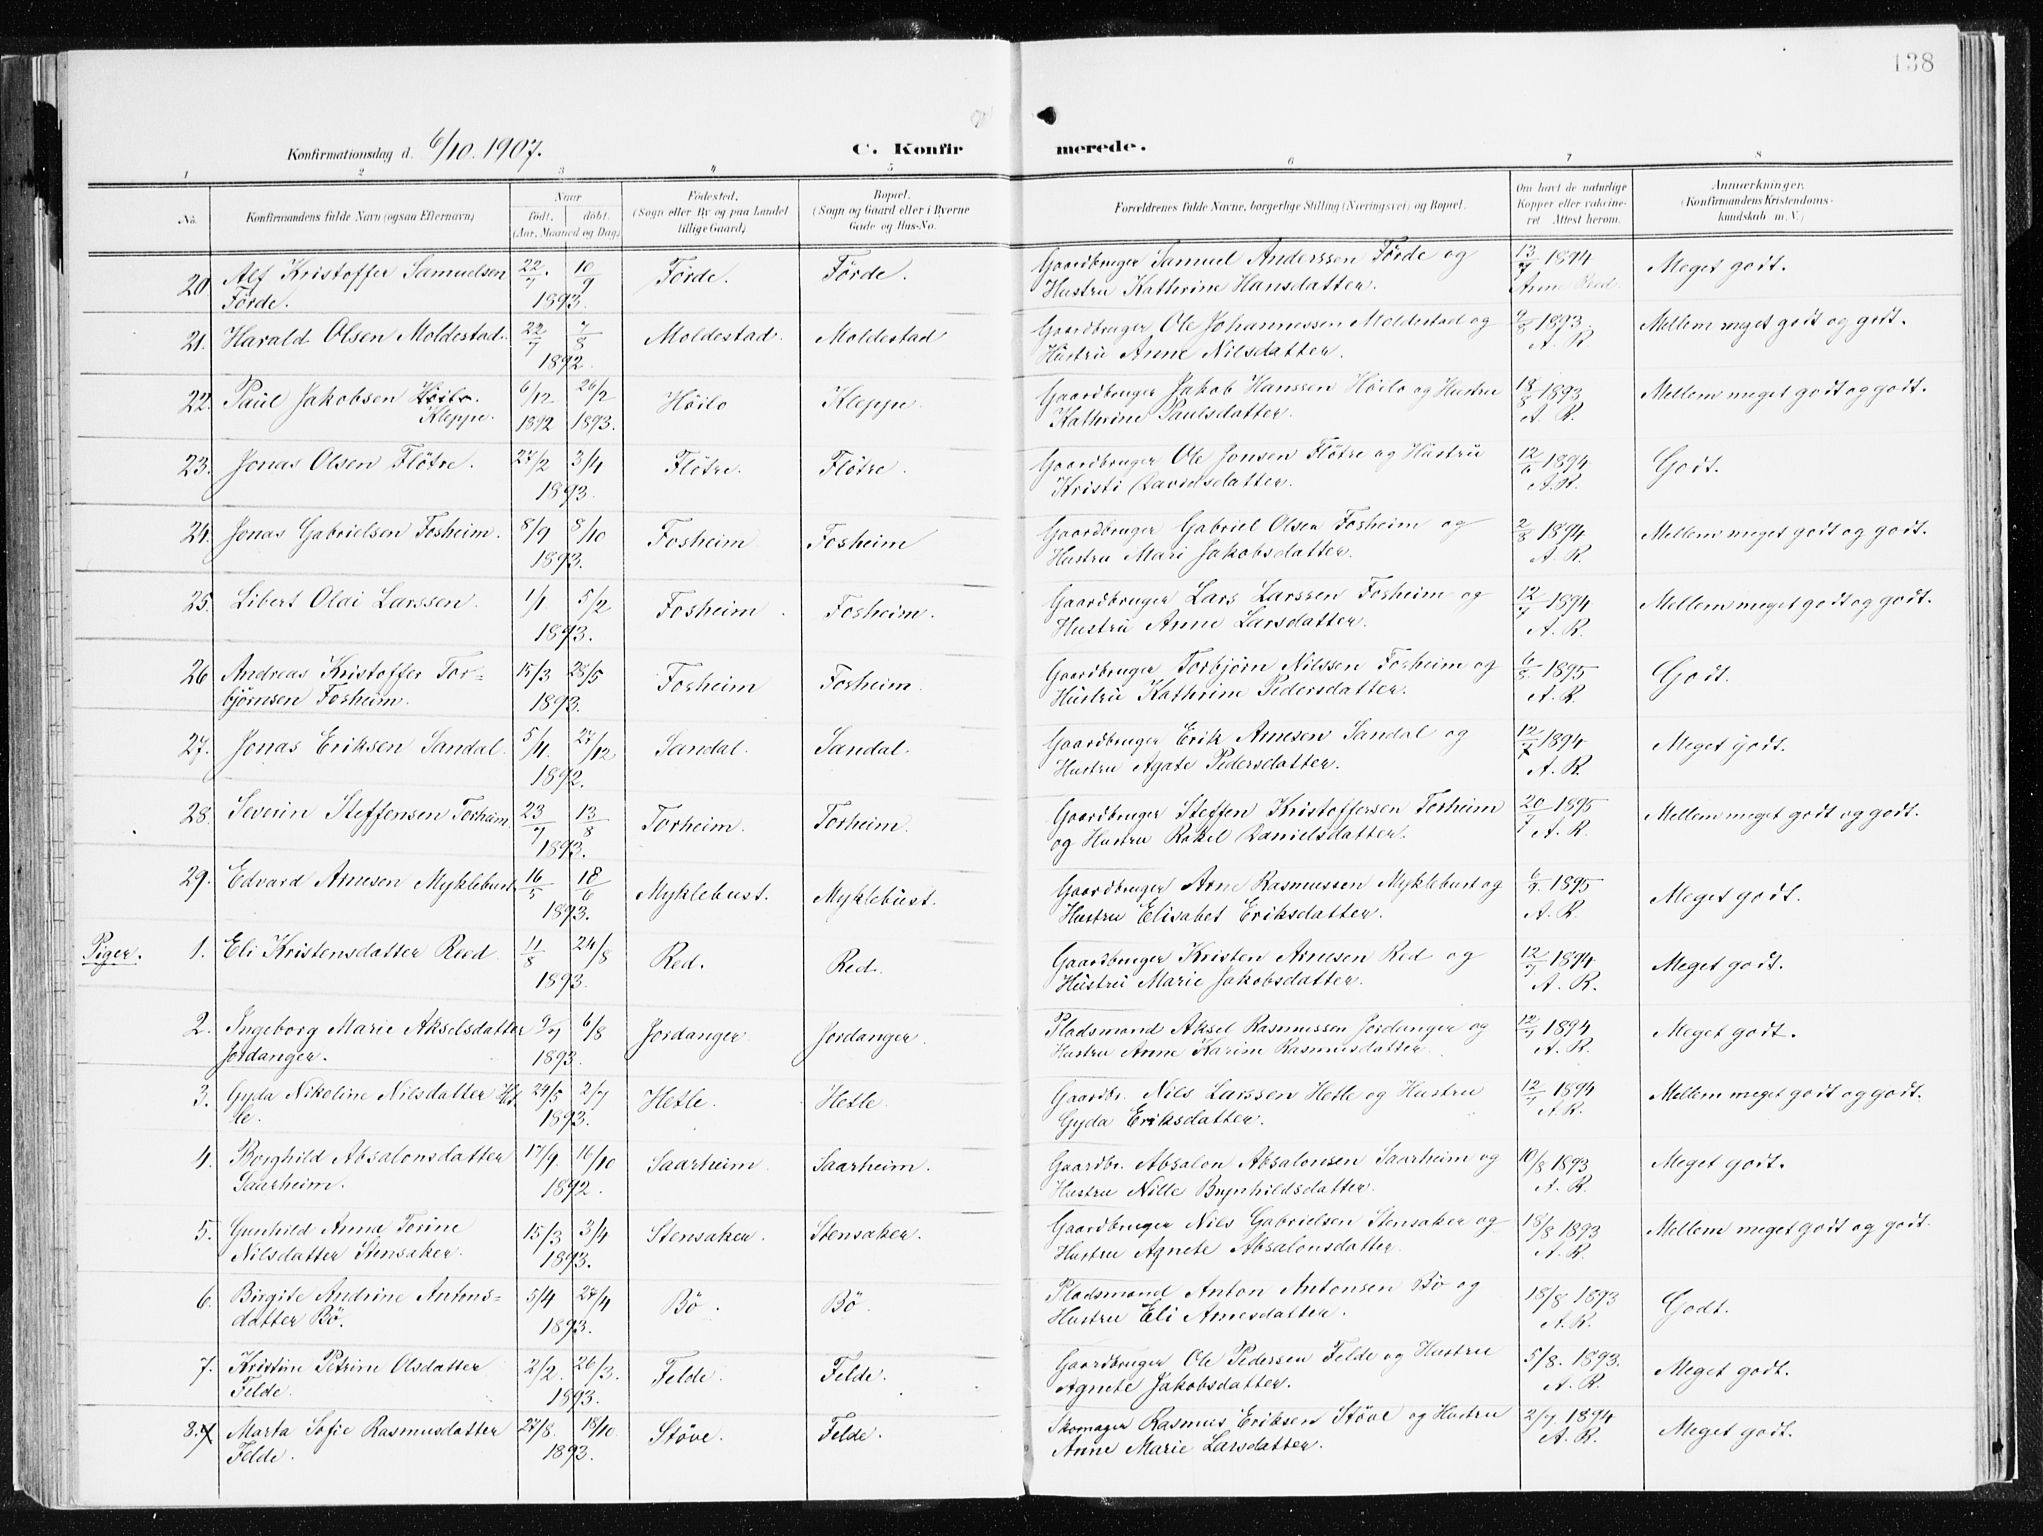 138
Konfirmationsdag d. 6/10. 1907.
C. Konfirmerede.
1 2 3 4 5 6 7 8
No. Konfirmandens fulde Navn (ogsaa Efternavn) Naar født. døbt. (Aar, Maaned og Dag) Fødested. (Sogn eller By og paa Landet tillige Gaard) Bopæl. (Sogn og Gaard eller i Byerne Gade og Hus-No. Forældrenes fulde Navne, borgerlige Stilling (Næringsvei) og Bopæl. Om havt de naturlige Kopper eller vaccineret. Attest herom. Anmærkninger. (Konfirmandens Kristendomskundskab m. V.)
20. Alf Kristoffer Samuelsen 22/7. 10/9 Førde. Førde. Gaardbruger Samuel Anderssen Førde og 13/7 1894 Meget godt.
Førde. 1893. Hustru Kathrine Hansdatter. Arne
21. Harald Olsen Moldestad. 22/7 7/8 Moldestad. Moldestad Gaardbruger Ole Johannessen Moldestad og 9/8 1893. Mellem meget godt og godt.
1892. Hustru Anne Nilsdatter. A. R
22. Paul Jakobsen Høilo. 6/12 26/2 Høilo Kleppe. Gaardbruger Jakob Hanssen Høilo og Hustru 18/8 1893 Mellem meget godt og godt.
Kleppe. 1892 1893. Kathrine Paulsdatter. A. R.
23. Jonas Olsen Fløtre. 27/2 3/4 Fløtre. Fløtre. Gaardbruger Ole Jonsen Fløtre og Hustru 12/6 1894 Godt.
1893. Kristi Davidsdatter. A.R.
24. Jonas Gabrielsen Fosheim. 8/9 8/10 Fosheim Fosheim Gaardbruger Gabriel Olsen Fosheim og 2/8 1894 Mellem meget godt og godt.
1893. Hustru Mari Jakobsdatter. A. R.
25. Libert Oldi Larssen. 1/1. 5/2 Fosheim. Fosheim. Gaardbruger Lars Larssen Fosheim og 12/7 1894 Mellem meget godt og godt.
1893. Hustru Anne Larsdatter. A. R.
26 Andreas Kristoffer Tor- 15/3 28/5 Fosheim Fosheim. Gaardbruger Torbjørn Nilssen Fosheim og 6/8 1895 Godt.
bjørnsen Fosheim. 1893. Hustru Kathrine Pedersdatter. A. R.
27. Jonas Eriksen Sandal. 5/4 27/12 Sandal. Sandal. Gaardbruger Erik Arnesen Sandal og 12/7 1894 Meget godt.
1892. Hustru Agate Pedersdatter. A. R.
28. Severin Steffensen Torheim. 23/7 13/8 Torheim. Torheim. Gaardbruger Steffen Kristoffersen Torheim 20/7 1895 Mellem meget godt og godt.
1893. og Hustru Rakel Danielsdatter. A. R.
29. Edvard Arnesen Myklebust. 16/5 18/6 Myklebust. Myklebust. Gaardbruger Arne Rasmussen Myklebust og 6/7 1895 Meget godt.
1893. Hustru Elisabet Eriksdatter. A. R.
Piger. 1. Eli Kristensdatter Reed. 11/8 24/8 Red. Red. Gaardbruger Kristen Arnesen Red og 12/7 1894 Meget godt.
1893. Hustru Marie Jakobsdatter. A. R.
2. Ingeborg Marie Akselsdatter 9/7 6/8 Jordanger Jordanger. Pladsmand Aksel Rasmussen Jordanger og 12/7 1894 Meget godt.
Jordanger. 1893. Hustru Anne Karine Rasmusdatter. A. R.
3. Gyda Nikoline Nilsdatter Het- 24/5 2/7 Hetle. Hetle. Gaardbr. Nils Larssen Hetle og Hustru 12/7 1894 Mellem meget godt og godt.
le. 1893. Gyda Eriksdatter. A.R.
4. Borghild Absalonsdatter 17/9. 16/10 Saarheim. Saarheim. Gaardbr. Absalon Absalonsen Saarheim og 10/8 1893 Meget godt.
Saarheim. 1892. Hustru Nille Brynhildsdatter. A. R.
5. Gunhild Anna Torine 15/3 3/4 Stensaker. Stensaker. Gaardbruger Nils Gabrielsen Stensaker og 18/8 1893 Mellem meget godt og godt.
Nilsdatter Stensaker. 1893. Hustru Agnete Absalonsdatter. A. R.
6. Birgite Andrine Antons- 5/4 27/4 Bø. Bø. Pladsmand Anton Antonsen Bø og 18/8 1893 Godt.
datter Bø. 1893. Hustru Eli Arnesdatter. A.R.
7. Kristine Petrine Olsdatter 2/2. 26/3. Felde. Felde. Gaardbruger Ole Pedersen Felde og Hustru 5/8. 1893. Meget godt.
Felde. 1893. Agnete Jakobsdatter. A. R.
8. Marta Sofie Rasmusdatter 27/8. 18/10 Støve. Felde. Skomager Rasmus Eriksen Støve og Hustru 2/7 1894 Meget godt.
Felde. 1893. Anne Marie Larsdatter. A. R.